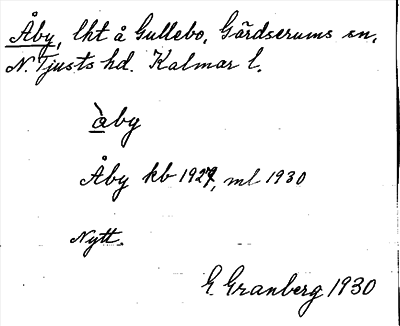 Åby, lht å Gullebo, Gärdserums sn,
N. Tjusts hd. Kalmar l.
àby
Åby kb 1927, ml 1930
Nytt.
G. Granberg 1930